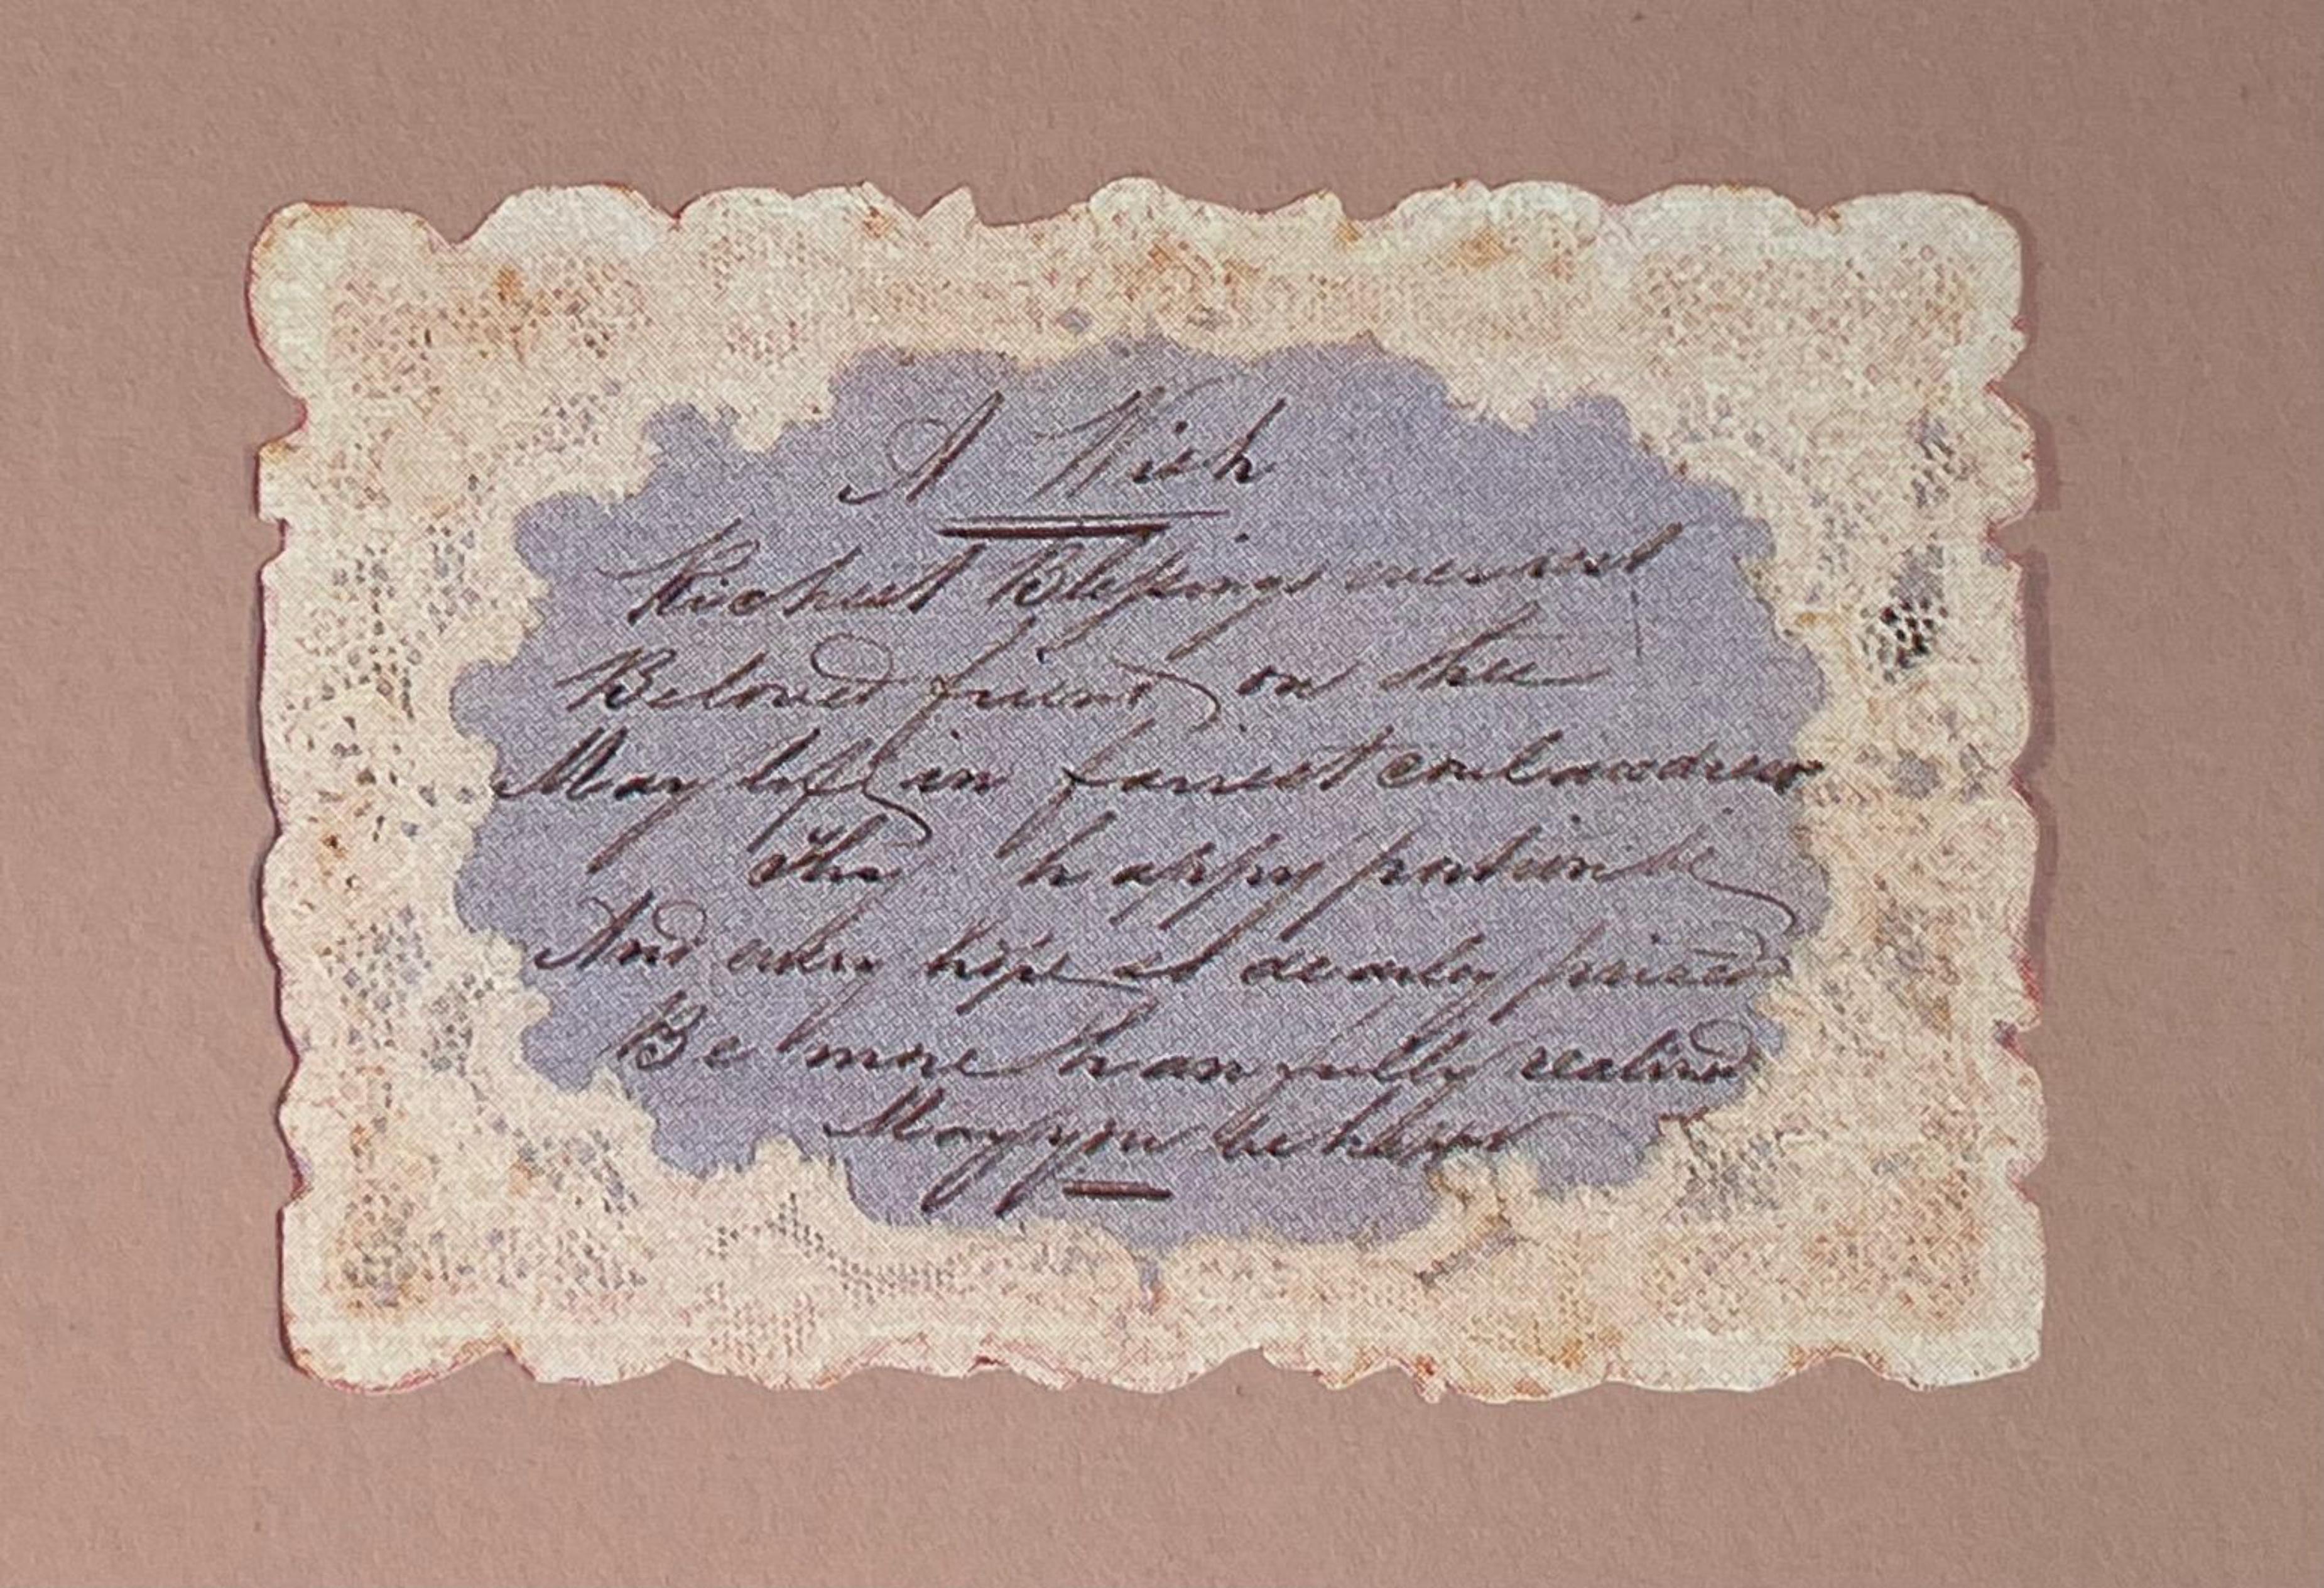 A Wish
Richest Blessings ever rest
Beloved friend on thee
May life in fairest colours drest
thy happy portion be
And every hope as dearly prized
Be more than fully realised
May you be happy